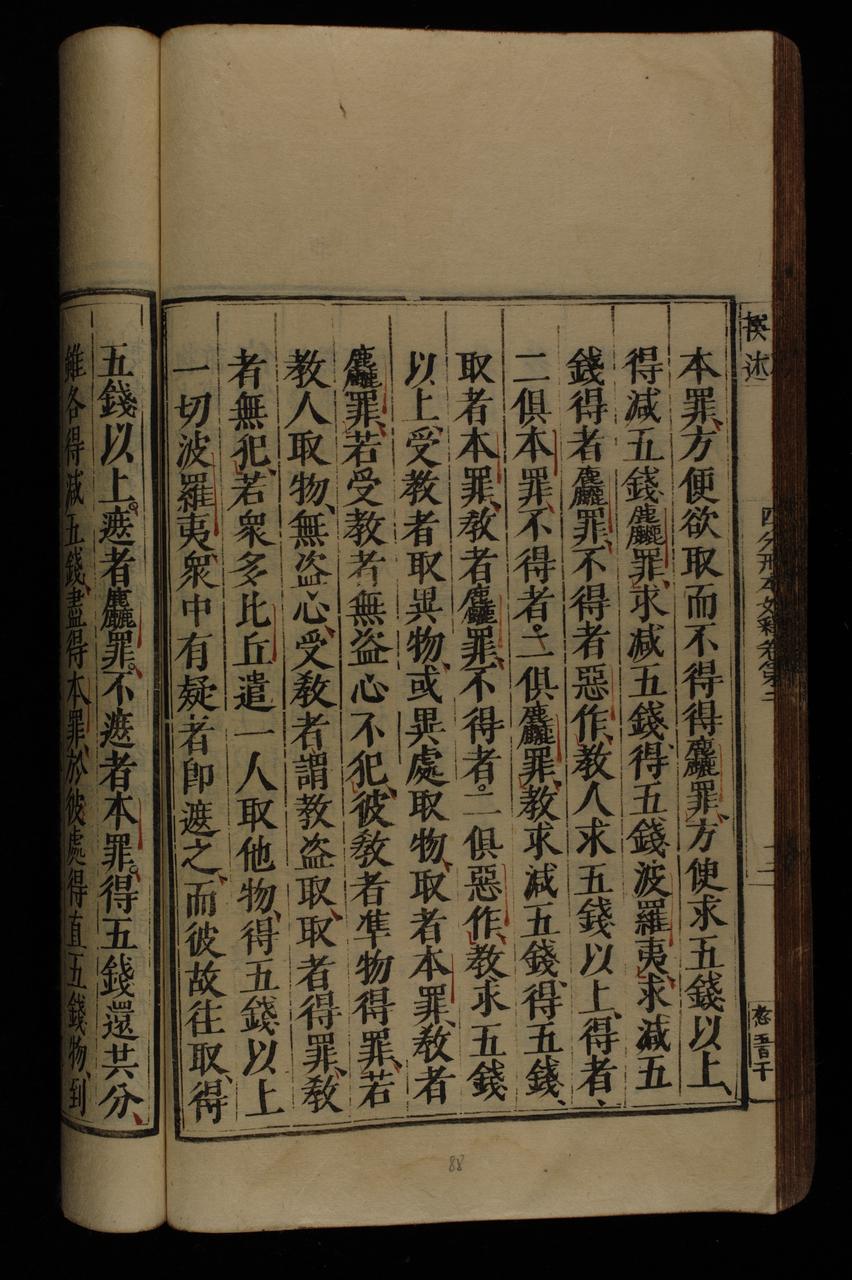 本罪、方便欲取而不得得麤罪、方便求五錢以上、
得減五錢、麤罪、求減五錢、得五錢波羅夷、求減五
錢得者麤罪、不得者惡作、教人求五錢以上、得者、
二俱本罪、不得者、二俱麤罪、教求減五錢、得五錢、
取者本罪、教者麤罪、不得者。二俱惡作、教求五錢
以上、受教者取異物、或異處取物、取者本罪、教者
麤罪、若受教者無盜心不犯、彼教者準物得罪、若
教人取物、無盜心、受教者謂教盜取、取者得罪、教
者無犯、若眾多比丘遣一人取他物、得五錢以上
一切波羅夷、眾中有疑者即遮之、而彼故往取、得
五錢以上。遮者麤罪。不遮者本罪。得五錢還共分、
雖各得減五錢、盡得本罪、於彼處得直五錢物、到
四分戒本如釋卷第二
二
88